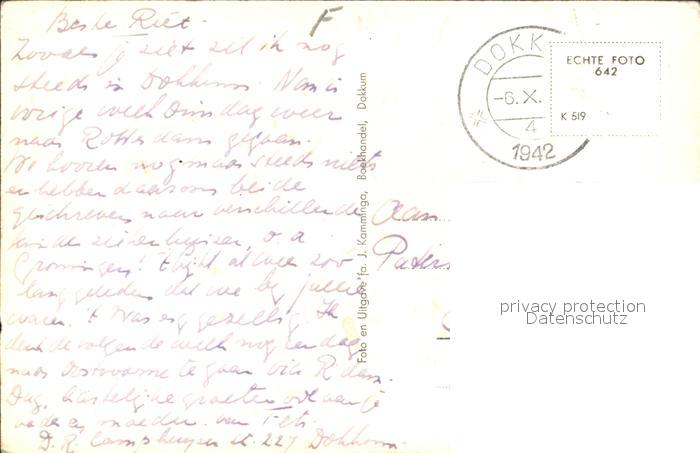 Beste Riet.
F
Zooals je ziet zit ik nog
steeds in Dokkum. Nan is
vorige week Dinsdag weer
naar Rotterdam gegaan.
We hooren nog maar steeds niets
en hebben daarom beide
geschreven naar verschillende
ziekenhuizen, o a
Groningen! t lijkt al weer zoo
lang geleden dat we by jullie
waren. 't Was erg gezellig. Ik
denk de volgende week nog een dag
naar Oostvoorne te gaan
Dag, hartelijke groeten ook aan je
vader en moeder. van
D. R. Camphuysen st. 227 Dokkum.
Foto en Uitgave fa. J. Kamminga, Boekhandel, Dokkum
DOKK
-6.X.
4
1942
ECHTE FOTO
642
K 519
Aan
privacy protection
Datenschutz